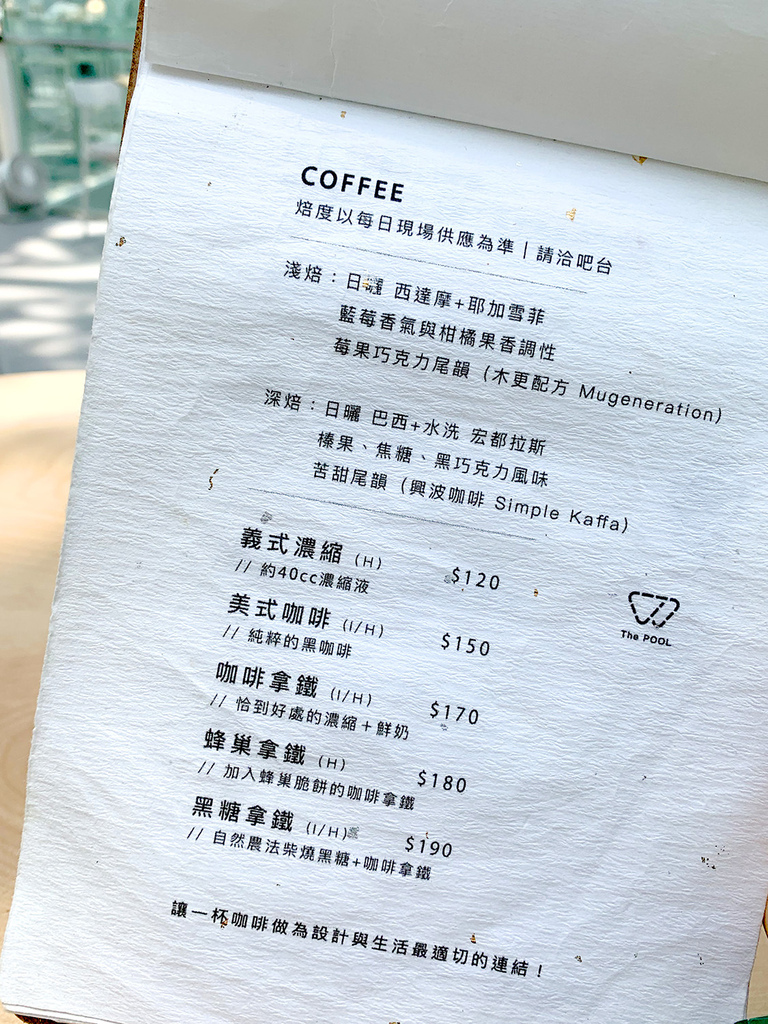 COFFEE
焙度以每日現場供應為準｜請洽吧台
淺焙：日曬 西達摩+耶加雪菲
藍莓香氣與柑橘果香調性
莓果巧克力尾韻（木更配方 Mugeneration）
深焙：日曬 巴西+水洗 宏都拉斯
榛果、焦糖、黑巧克力風味
苦甜尾韻（興波咖啡 Simple Kaffa）
義式濃縮 (H) $120
// 約40cc濃縮液
美式咖啡 (I/H) $150
// 純粹的黑咖啡
咖啡拿鐵 (I/H) $170
// 恰到好處的濃縮＋鮮奶
蜂巢拿鐵 (H) $180
// 加入蜂巢脆餅的咖啡拿鐵
黑糖拿鐵 (I/H) $190
// 自然農法柴燒黑糖+咖啡拿鐵
The POOL
讓一杯咖啡做為設計與生活最適切的連結！